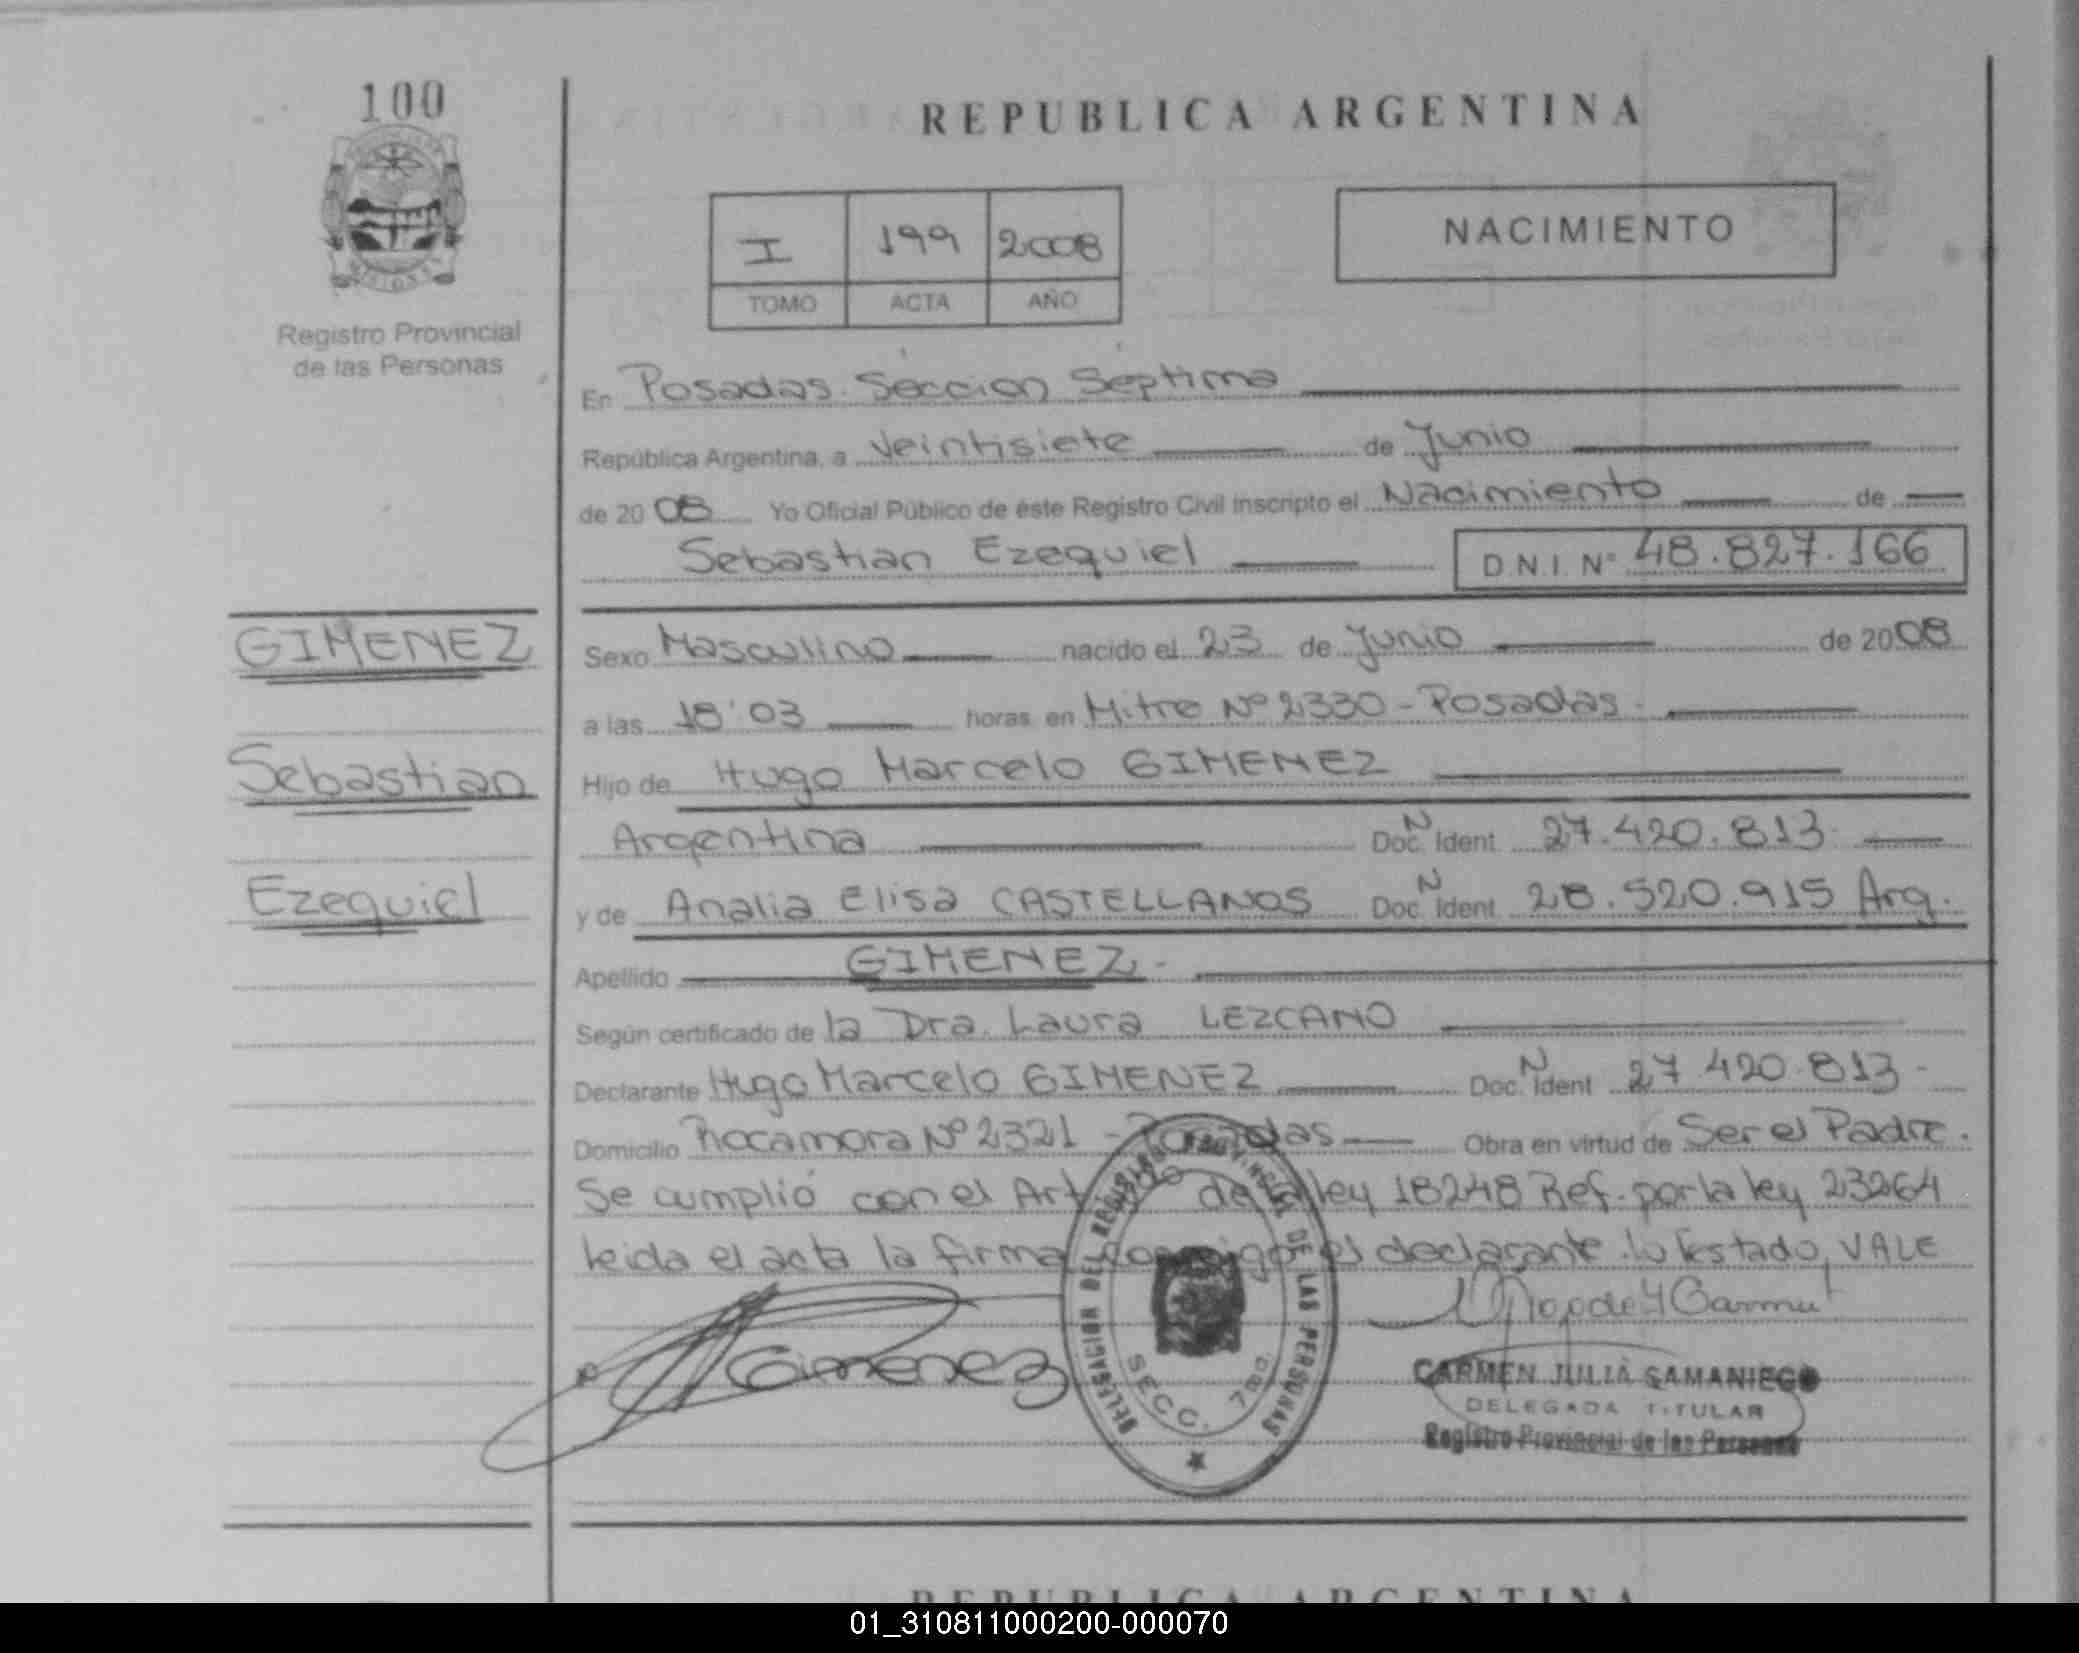 100
REPUBLICA ARGENTINA
I 199 2008
TOMO ACTA AÑO
NACIMIENTO
MISIONES
Registro Provincial
de las Personas
En Posadas. Sección Séptima
República Argentina, a Veintisiete de Junio
de 2008 Yo Oficial Público de éste Registro Civil inscripto el Nacimiento de
Sebastian Ezequiel D.N.I. Nº 48.827.166
GIMENEZ
Sebastian
Ezequiel
Sexo Masculino nacido el 23 de Junio de 2008
a las 18'03 horas en Mitre Nº 2330 - Posadas -
Hijo de Hugo Marcelo GIMENEZ
Argentina Doc. N Ident 27.420.813-
y de Analia Elisa CASTELLANOS Doc. N Ident 28.520.915 Arg.
Apellido GIMENEZ -
Según certificado de la Dra. Laura LEZCANO
Declarante Hugo Marcelo GIMENEZ Doc. N Ident 27.420.813-
Domicilio Rocamora Nº 2321 - Posadas Obra en virtud de Ser el Padre.
Se cumplió con el Art de ley 18248 Ref. por la ley 23264
leida el acta la firma el declarante. lo testado, VALE
Gimenez
DELEGACION DEL REGISTRO PROVINCIAL DE LAS PERSONAS
SECC. 7ma.
CARMEN JULIA SAMANIEGO
DELEGADA TITULAR
Registro Provincial de las Personas
REPUBLICA ARGENTINA
01_310811000200-000070